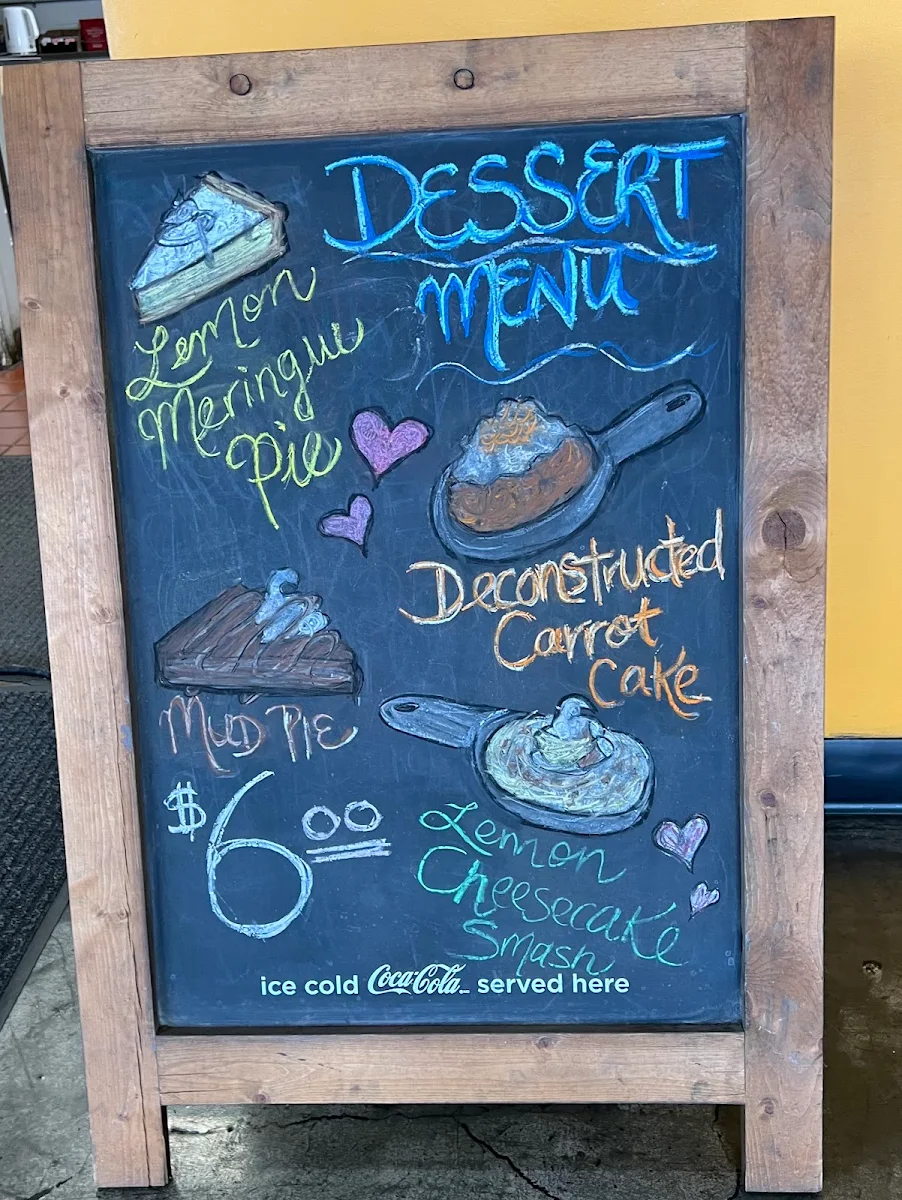 DESSERT
MENU
Lemon
Meringue
Pie
Deconstructed
Carrot
Cake
MUD PIE
$6.00
Lemon
Cheesecake
Smash
ice cold Coca-Cola served here